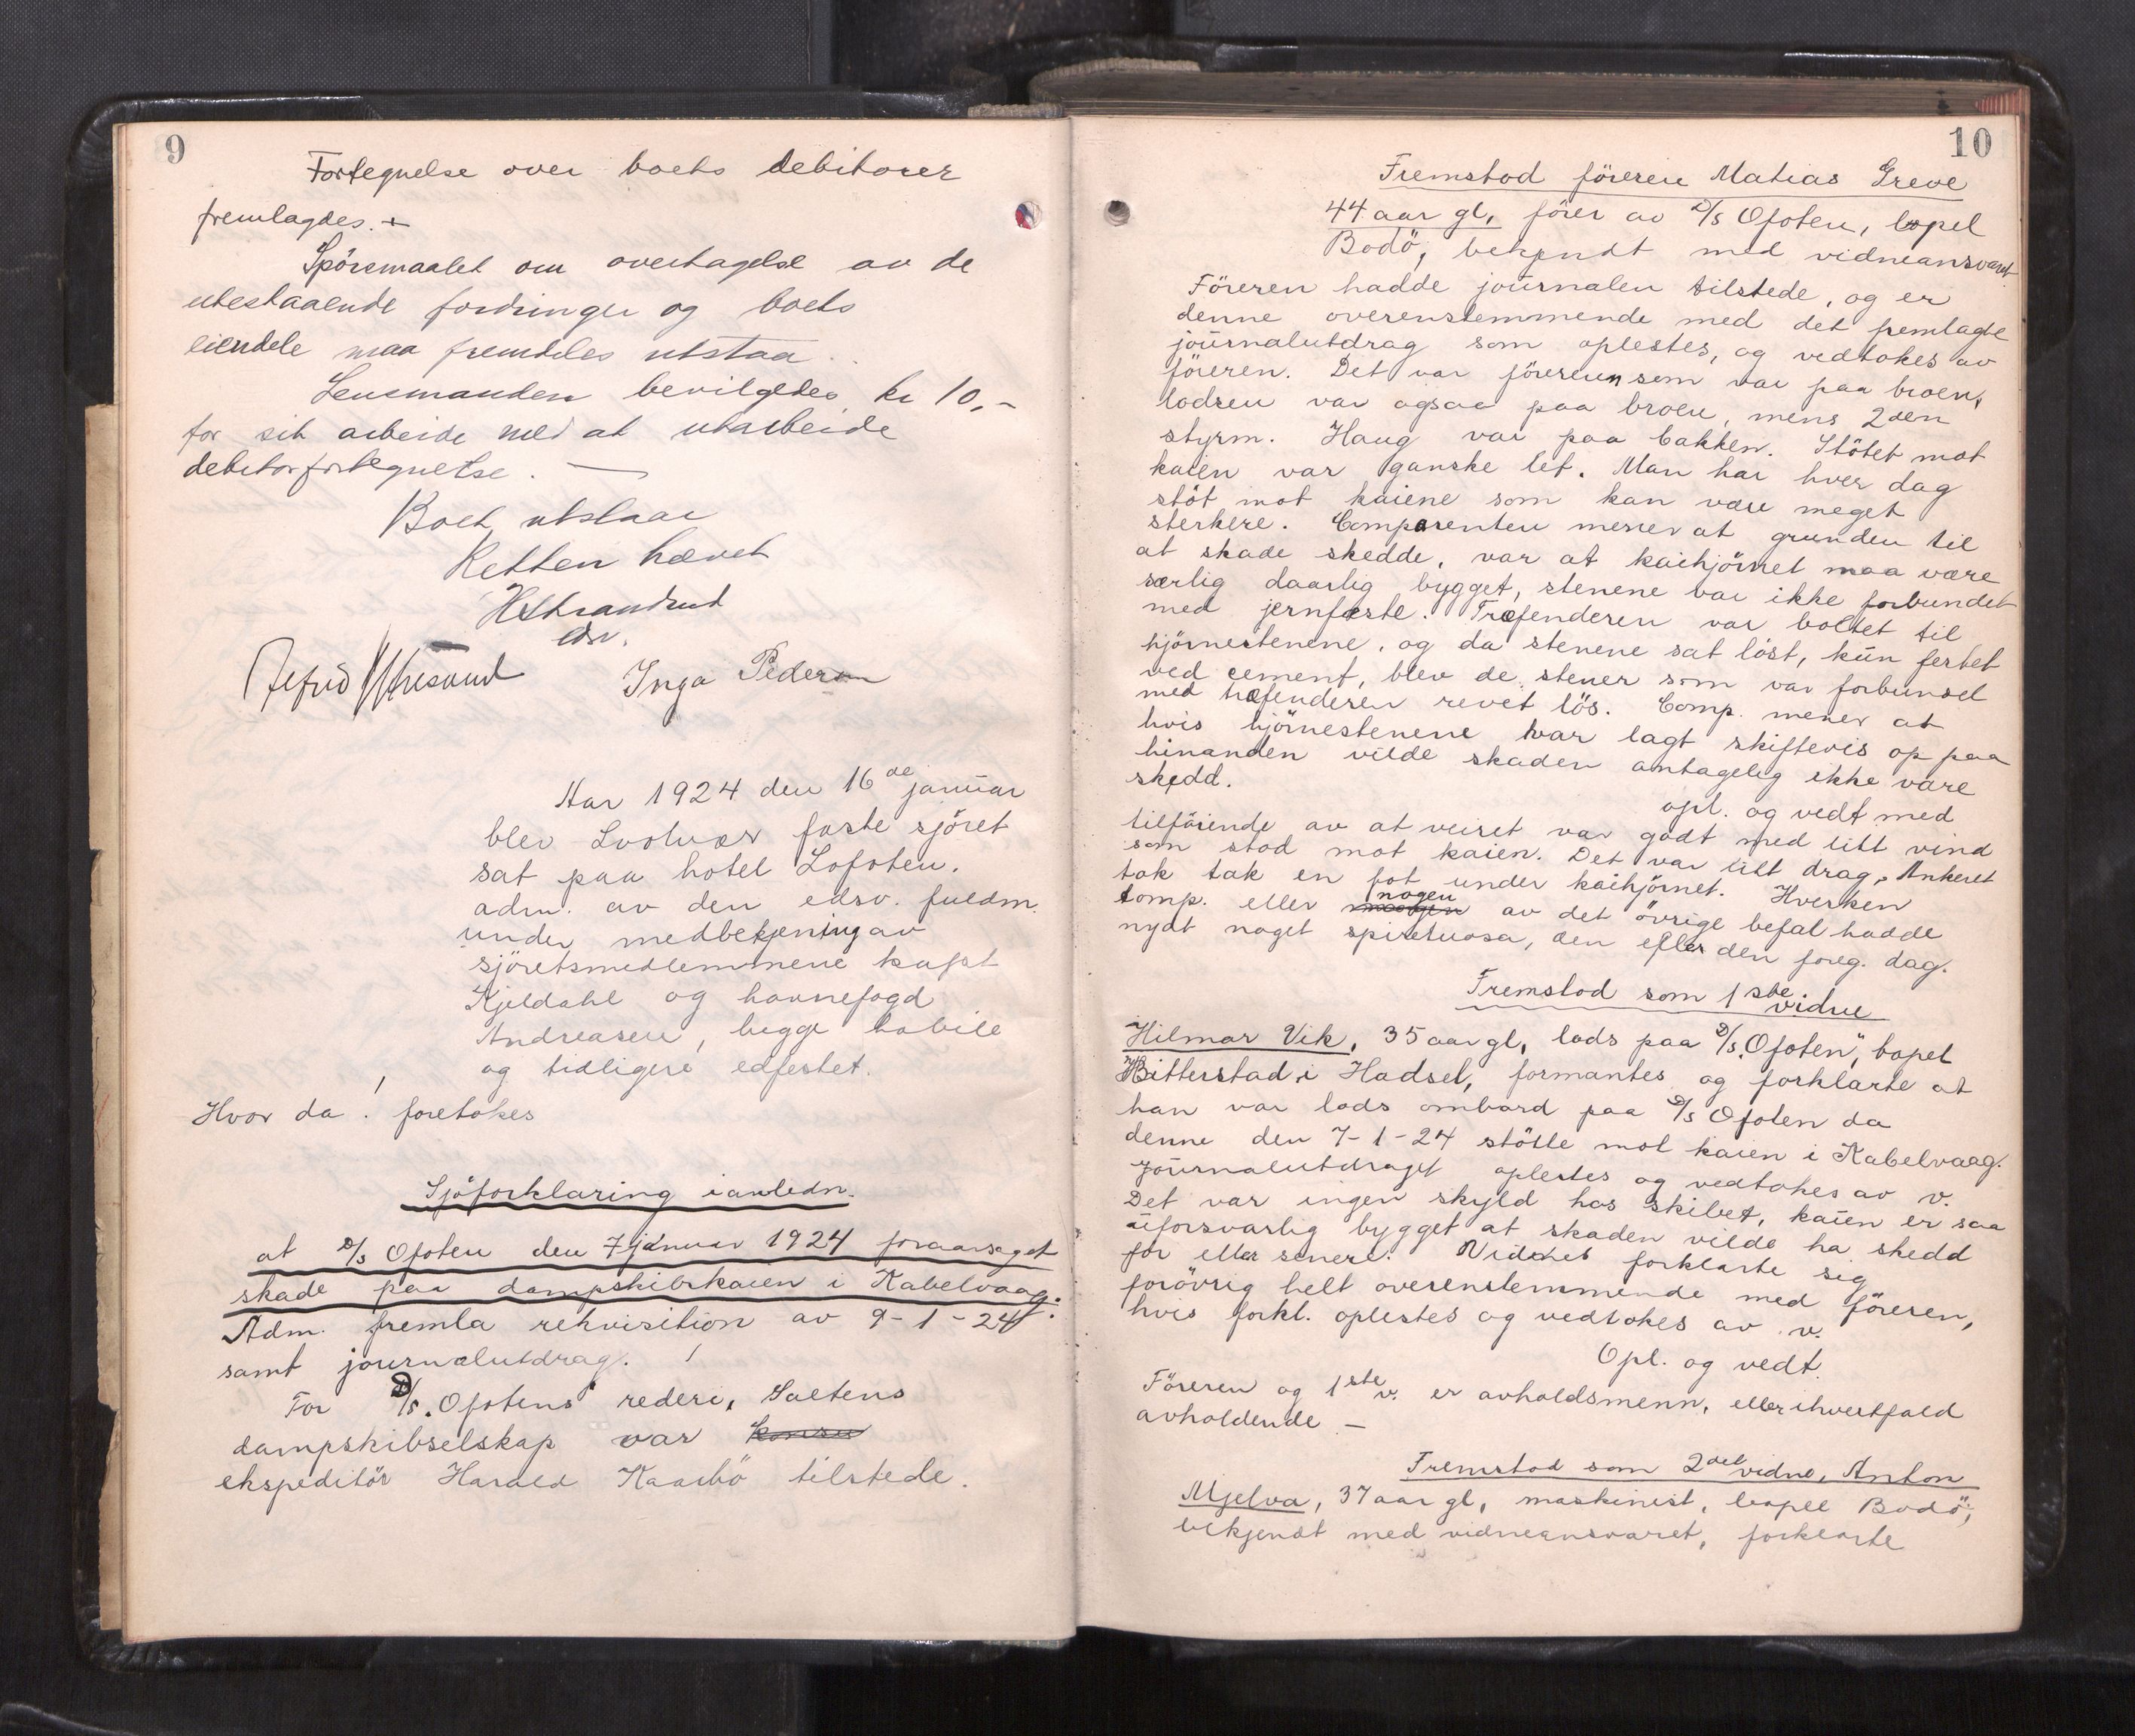 9
Fortegnelse over boets debitorer
fremlagdes. +
Spörsmaalet om overtagelse av de
utestaaende fordringer og boets
eiendele maa fremdeles utstaa.
Lensmanden bevilgedes kr 10.-
for sit arbeide med at utarbeide
debitorfortegnelse. —
Boet utstaar
Retten hævet
HStrandrud
edsv.
Inga Pedersen
Aar 1924 den 16de januar
blev Svolvær faste sjöret
sat paa hotel Lofoten.
adm. av den edsv. fuldm.
under medbetjening av
sjöretsmedlemmene kapt
Kjeldahl og havnefogd
Andreasen, begge habile
og tidligere edfestet.
Hvor da! foretokes
Sjöforklaring i anledn.
at D/s Ofoten den 7 januar 1924 foraarsaget
skade paa dampskibskaien i Kabelvaag.
Adm. fremla rekvisition av 9-1-24
samt journalutdrag. /
For D/s "Ofotens" rederi, Saltens
dampskibselskap var
ekspeditör Harald Kaarbö tilstede.
10
Fremstod föreren Matias Greve
44 aar gl, förer av D/s Ofoten, bopel
Bodö, bekjendt med vidneansvaret
Föreren hadde journalen tilstede, og er
denne overenstemmende med det fremlagte
journalutdrag som oplestes, og vedtokes av
föreren. Det var föreren som var paa broen,
lodsen var ogsaa paa broen, mens 2den
styrm. Haug var paa bakken. Stötet mot
kaien var ganske let. Man har hver dag
stöt mot kaiene som kan være meget
sterkere. Comparenten mener at grunden til
at skade skedde, var at kaihjörnet maa være
særlig daarlig bygget, stenene var ikke forbundet
med jernfæste. Træfenderen var boltet til
hjörnestenene, og da stenene sat löst, kun festet
ved cement, blev de stener som var forbundet
med træfenderen revet lös. Comp. mener at
hvis hjörnestenene var lagt skiftevis op paa
hinanden vilde skaden antagelig ikke være
skedd.
opl. og vedt med
tilföiende av at veiret var godt med litt vind
som stod mot kaien. Det var litt drag. Ankeret
tok tak en fot under kaihjörnet. Hverken
comp. eller nogen av det övrige befal hadde
nydt noget spirituosa, den eller den foreg. dag.
Fremstod som 1ste vidne
Hilmar Vik, 35 aar gl, lods paa D/s "Ofoten", bopel
Hitterstad i Hadsel, formantes og forklarte at
han var lods ombord paa D/s Ofoten da
denne den 7-1-24 stötte mot kaien i Kabelvaag.
Journalutdraget oplestes og vedtokes av v.
Det var ingen skyld hos skibet, kaien er saa
uforsvarlig bygget at skaden vilde ha skedd
för eller senere. Vidnet forklarte sig
forövrig helt overenstemmende med föreren,
hvis forkl. oplestes og vedtokes av v.
Opl. og vedt.
Föreren og 1ste v. er avholdsmenn, eller ihvertfald
avholdende —
Fremstod som 2det vidne, Anton
Mjelva, 37 aar gl, maskinist, bopel Bodö,
bekjendt med vidneansvaret, forklarte